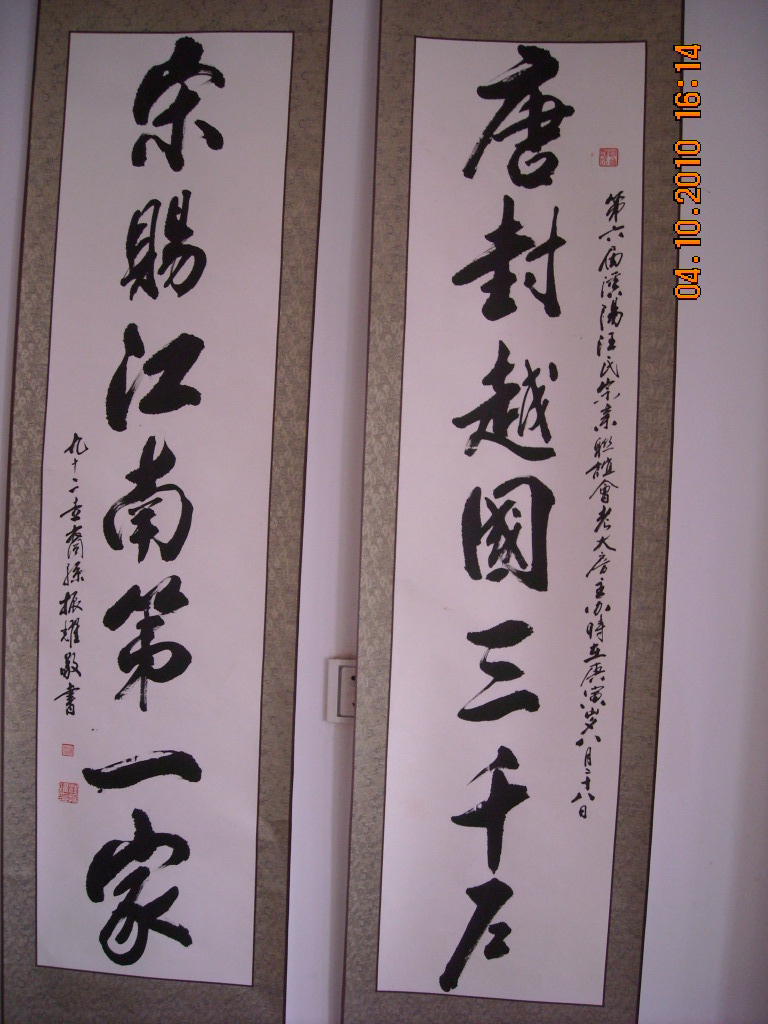 唐封越國三千石
第六届漢陽汪氏宗親聯誼會老大房主办時在庚寅岁八月二十八日
宋賜江南第一家
九十二世裔孫振耀敬書
04.10.2010 16:14